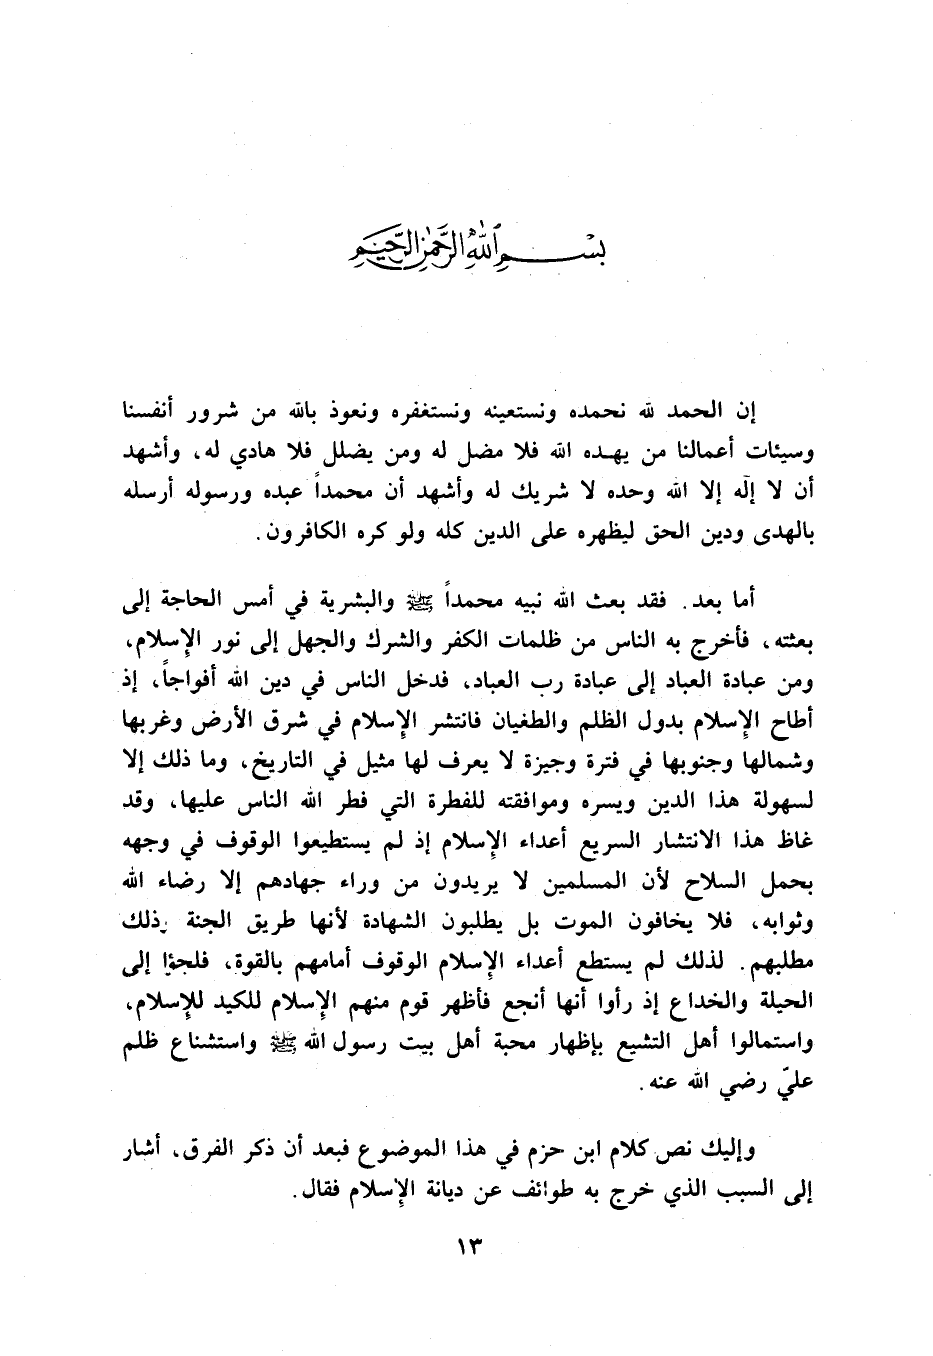 بسم الله الرحمن الرحيم
إن الحمد لله نحمده ونستعينه ونستغفره ونعوذ بالله من شرور أنفسنا
وسيئات أعمالنا من يهده الله فلا مضل له ومن يضلل فلا هادي له، وأشهد
أن لا إلٰه إلا الله وحده لا شريك له وأشهد أن محمداً عبده ورسوله أرسله
بالهدى ودين الحق ليظهره على الدين كله ولو كره الكافرون.
أما بعد. فقد بعث الله نبيه محمداً ﷺ والبشرية في أمس الحاجة إلى
بعثته، فأخرج به الناس من ظلمات الكفر والشرك والجهل إلى نور الإسلام،
ومن عبادة العباد إلى عبادة رب العباد، فدخل الناس في دين الله أفواجاً، إذ
أطاح الإسلام بدول الظلم والطغيان فانتشر الإسلام في شرق الأرض وغربها
وشمالها وجنوبها في فترة وجيزة لا يعرف لها مثيل في التاريخ، وما ذلك إلا
لسهولة هذا الدين ويسره وموافقته للفطرة التي فطر الله الناس عليها، وقد
غاظ هذا الانتشار السريع أعداء الإسلام إذ لم يستطيعوا الوقوف في وجهه
بحمل السلاح لأن المسلمين لا يريدون من وراء جهادهم إلا رضاء الله
وثوابه، فلا يخافون الموت بل يطلبون الشهادة لأنها طريق الجنة وذلك
مطلبهم. لذلك لم يستطع أعداء الإسلام الوقوف أمامهم بالقوة، فلجؤا إلى
الحيلة والخداع إذ رأوا أنها أنجع فأظهر قوم منهم الإسلام للكيد للإسلام،
واستمالوا أهل التشيع بإظهار محبة أهل بيت رسول الله ﷺ واستشناع ظلم
عليّ رضي الله عنه.
وإليك نص كلام ابن حزم في هذا الموضوع فبعد أن ذكر الفرق، أشار
إلى السبب الذي خرج به طوائف عن ديانة الإسلام فقال.
١٣